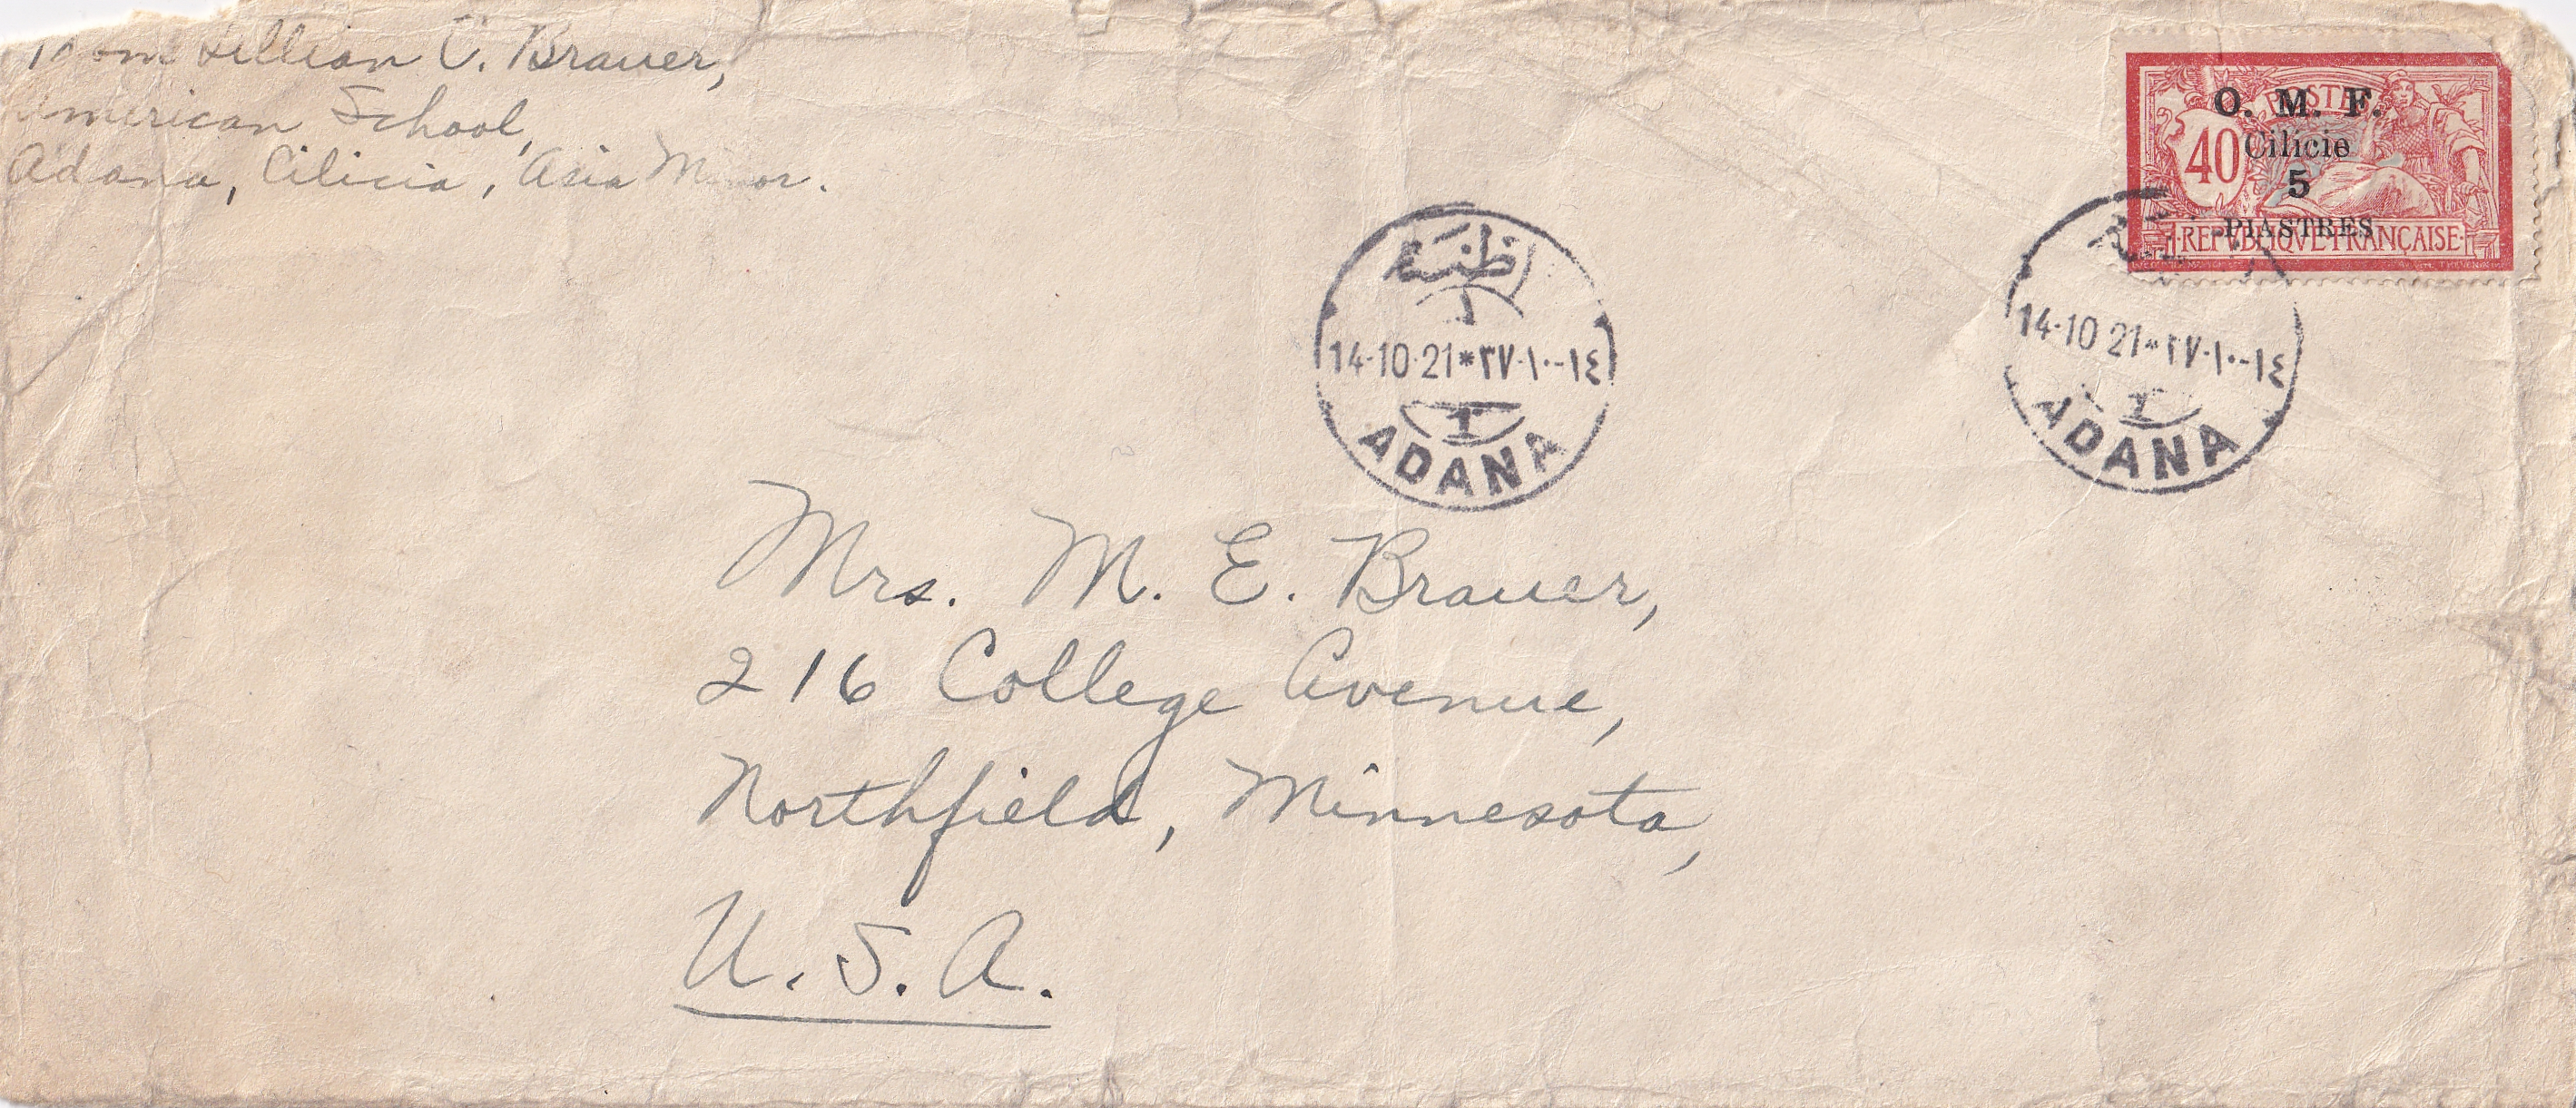 From Lillian C. Brauer,
American School,
Adana, Cilicia, Asia Minor.
POSTES
O. M. F.
40
Cilicie
5
PIASTRES
REPUBLIQUE FRANÇAISE
اطنه
14-10-21*٣٧-١٠-١٤
1
ADANA
14-10 21*٣٧-١٠-١٤
1
ADANA
Mrs. M. E. Brauer,
216 College Avenue,
Northfield, Minnesota,
U. S. A.